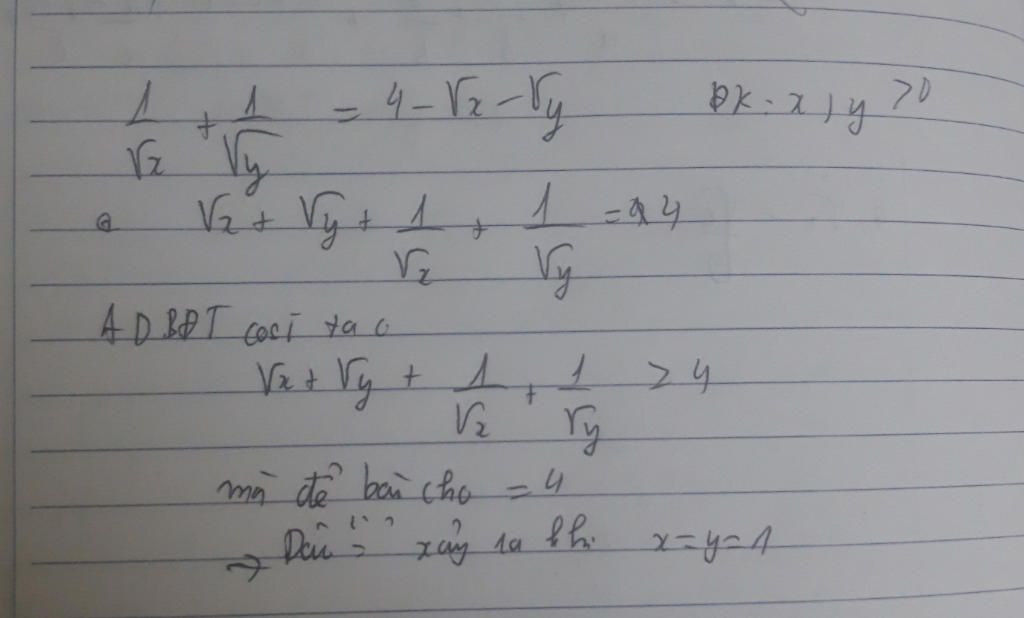 1/√x + 1/√y = 4 - √x - √y ĐK: x, y > 0
√x + √y + 1/√x + 1/√y = 4
ADBĐT cosi ta c
√x + √y + 1/√x + 1/√y ≥ 4
mà đề bài cho = 4
→ Dấu "=" xảy ra khi x = y = 1